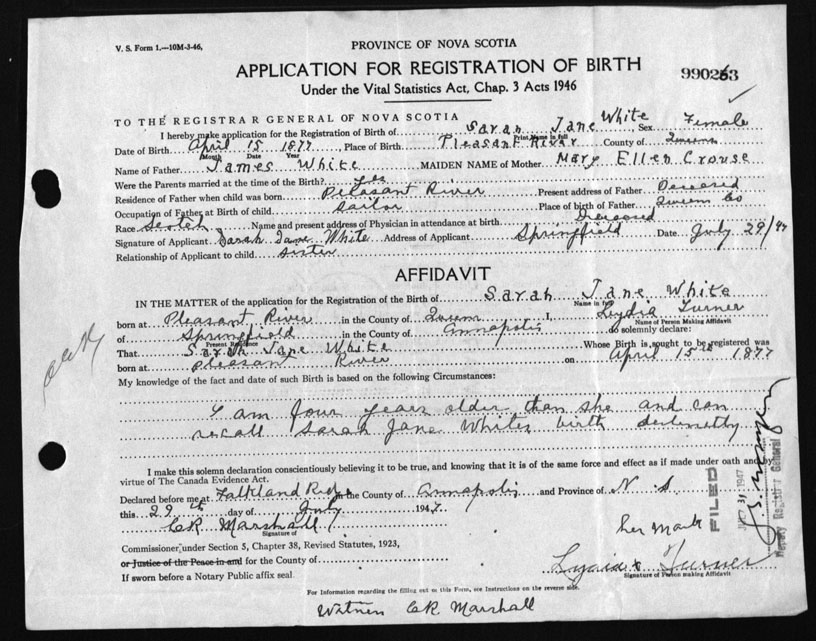 V. S. Form 1.—10M-3-46,
PROVINCE OF NOVA SCOTIA
APPLICATION FOR REGISTRATION OF BIRTH
990263
Under the Vital Statistics Act, Chap. 3 Acts 1946
TO THE REGISTRAR GENERAL OF NOVA SCOTIA
I hereby make application for the Registration of Birth of Sarah Jane White Sex Female
Print Name in full
Date of Birth April 15 1877, Place of Birth Pleasant River County of Queens
Month Date Year
Name of Father James White MAIDEN NAME of Mother Mary Ellen Crouse
Were the Parents married at the time of the Birth? yes
Residence of Father when child was born Pleasant River Present address of Father Deceased
Occupation of Father at Birth of child sailor Place of birth of Father Queens Co
Race Scotch Name and present address of Physician in attendance at birth Deceased
Signature of Applicant Sarah Jane White Address of Applicant Springfield Date July 29/47
Relationship of Applicant to child sister
AFFIDAVIT
IN THE MATTER of the application for the Registration of Birth of Sarah Jane White
Name in full
born at Pleasant River in the County of Queens I, Lydia Turner
Name of Person Making Affidavit
of Springfield in the County of Annapolis do solemnly declare:
Present Residence
That Sarah Jane White Whose Birth is sought to be registered was
born at Pleasant River on April 15th 1877
My knowledge of the fact and date of such Birth is based on the following Circumstances:
I am four years older than she and can
recall Sarah Jane Whites birth distinctly
I make this solemn declaration conscientiously believing it to be true, and knowing that it is of the same force and effect as if made under oath and by
virtue of The Canada Evidence Act.
Declared before me at Falkland Ridge in the County of Annapolis and Province of N S
this 29th day of July 1947.
CR. Marshall
Signature of
her Mark
Commissioner, under Section 5, Chapter 38, Revised Statutes, 1923,
or Justice of the Peace in and for the County of
Lydia x Turner
Signature of Person making Affidavit
If sworn before a Notary Public affix seal.
For Information regarding the filling out of this Form, see Instructions on the reverse side.
Witness CR Marshall
FILED
JUL 31 1947
Deputy Registrar General